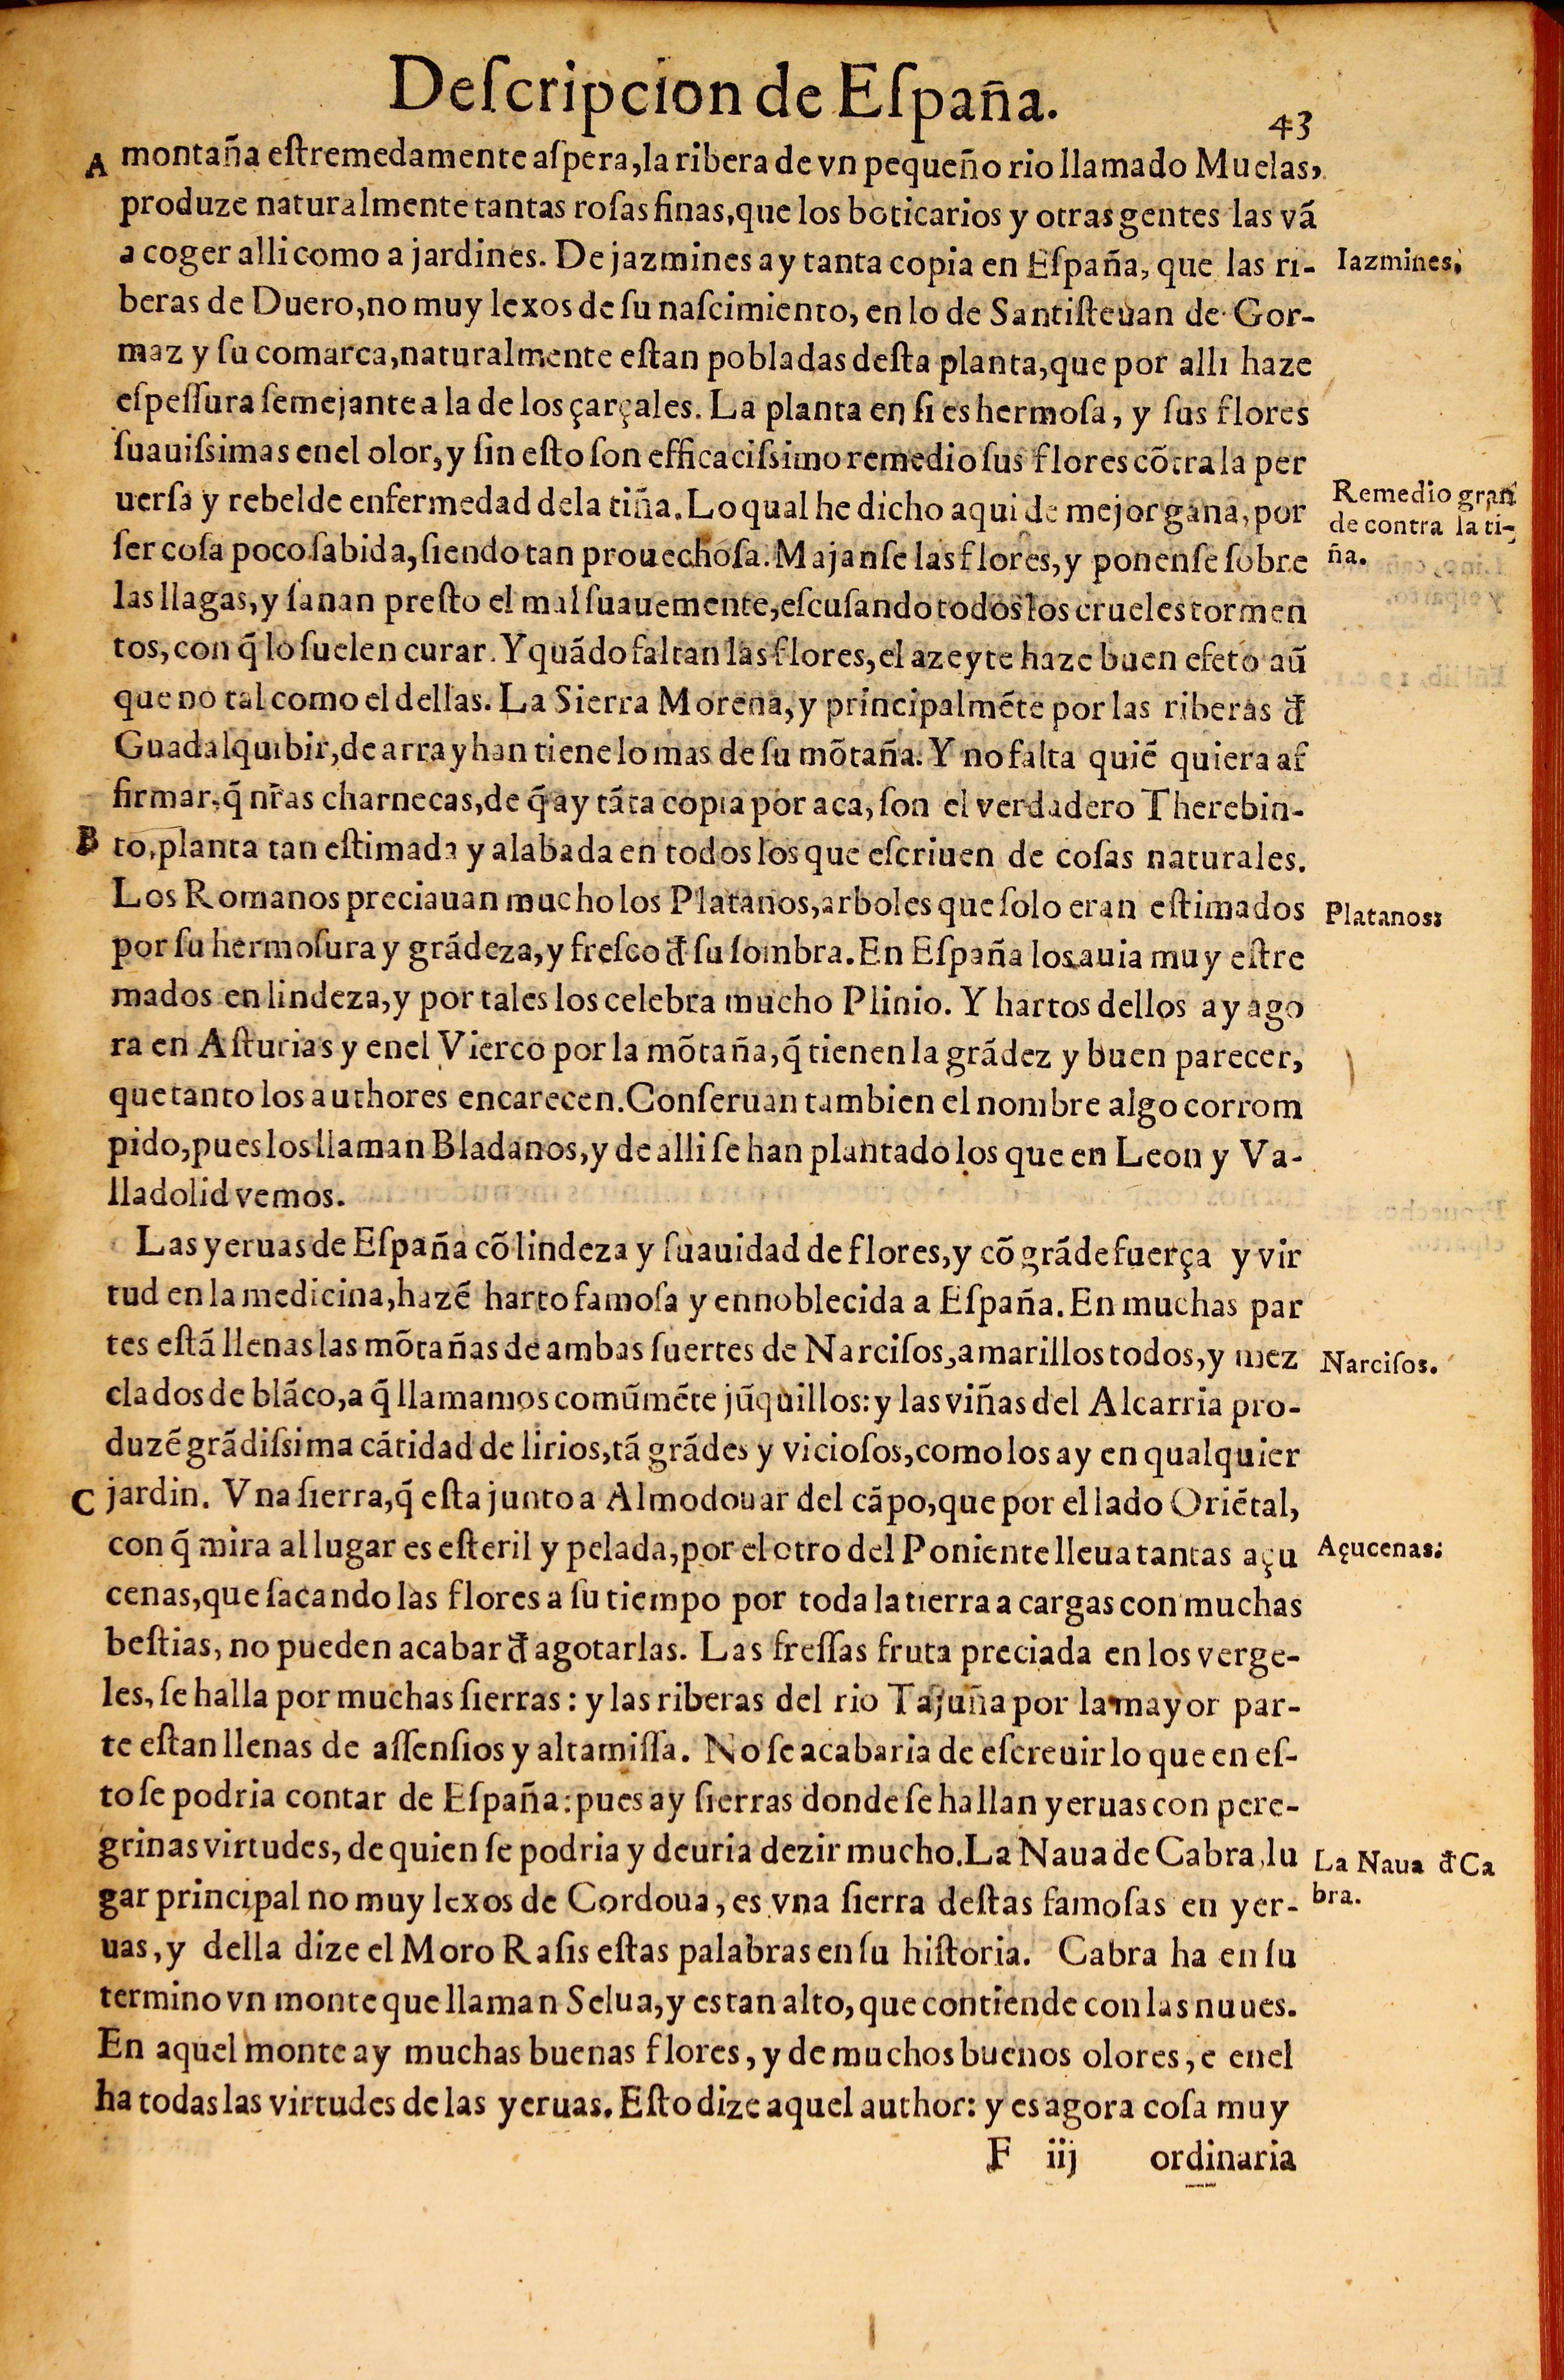 Deſcripcion de Eſpaña.
43
A montaña eſtremedamente aſpera, la ribera de vn pequeño rio llamado Muelas,
produze naturalmente tantas roſas finas, que los boticarios y otras gentes las vã
a coger alli como a jardines. De jazmines ay tanta copia en Eſpaña, que las ri-
Iazmines.
beras de Duero, no muy lexos de ſu naſcimiento, en lo de Santiſteuan de Gor-
maz y ſu comarca, naturalmente eſtan pobladas deſta planta, que por alli haze
eſpeſſura ſemejante a la de los çarçales. La planta en ſi es hermoſa, y ſus flores
ſuauiſsimas enel olor, y ſin eſto ſon efficaciſsimo remedio ſus flores cõtra la per
uerſa y rebelde enfermedad dela tiña. Lo qual he dicho aqui de mejor gana, por
Remedio gran
de contra la ti-
ña.
ſer coſa poco ſabida, ſiendo tan prouechoſa. Majanſe las flores, y ponenſe ſobre
las llagas, y ſanan preſto el mal ſuauemente, eſcuſando todos los crueles tormen
tos, con q̃ lo ſuelen curar. Y quãdo faltan las flores, el azeyte haze buen efeto aũ
que no tal como el dellas. La Sierra Morena, y principalmẽte por las riberas đ
Guadalquibir, de arrayhan tiene lo mas de ſu mõtaña. Y no falta quiẽ quiera af
firmar, q̃ nr̃as charnecas, de q̃ ay tãta copia por aca, ſon el verdadero Therebin-
B to, planta tan eſtimada y alabada en todos los que eſcriuen de coſas naturales.
Los Romanos preciauan mucho los Platanos, arboles que ſolo eran eſtimados
Platanos:
por ſu hermoſura y grãdeza, y freſco đ ſu ſombra. En Eſpaña los auia muy eſtre
mados en lindeza, y por tales los celebra mucho Plinio. Y hartos dellos ay ago
ra en Aſturias y enel Vierco por la mõtaña, q̃ tienen la grãdez y buen parecer,
que tanto los authores encarecen. Conſeruan tambien el nombre algo corrom
pido, pues los llaman Bladanos, y de alli ſe han plantado los que en Leon y Va-
lladolid vemos.
Las yeruas de Eſpaña cõ lindeza y ſuauidad de flores, y cõ grãde fuerça y vir
tud en la medicina, hazẽ harto famoſa y ennoblecida a Eſpaña. En muchas par
tes eſtã llenas las mõtañas de ambas ſuertes de Narciſos, amarillos todos, y mez
Narciſos.
clados de blãco, a q̃ llamamos comũmẽte jũquillos: y las viñas del Alcarria pro-
duzẽ grãdiſsima cãtidad de lirios, tã grãdes y vicioſos, como los ay en qualquier
C jardin. Vna ſierra, q̃ eſta junto a Almodouar del cãpo, que por el lado Oriẽtal,
con q̃ mira al lugar es eſteril y pelada, por el otro del Poniente lleua tantas açu
Açucenas:
cenas, que ſacando las flores a ſu tiempo por toda la tierra a cargas con muchas
beſtias, no pueden acabar đ agotarlas. Las freſſas fruta preciada en los verge-
les, ſe halla por muchas ſierras: y las riberas del rio Tajuña por la mayor par-
te eſtan llenas de aſſenſios y altamiſſa. No ſe acabaria de eſcreuir lo que en eſ-
to ſe podria contar de Eſpaña: pues ay ſierras donde ſe hallan yeruas con pere-
grinas virtudes, de quien ſe podria y deuria dezir mucho. La Naua de Cabra, lu
La Naua đ Ca
bra.
gar principal no muy lexos de Cordoua, es vna ſierra deſtas famoſas en yer-
uas, y della dize el Moro Raſis eſtas palabras en ſu hiſtoria. Cabra ha en ſu
termino vn monte que llaman Selua, y es tan alto, que contiende con las nuues.
En aquel monte ay muchas buenas flores, y de muchos buenos olores, e enel
ha todas las virtudes de las yeruas. Eſto dize aquel author: y es agora coſa muy
F iij ordinaria